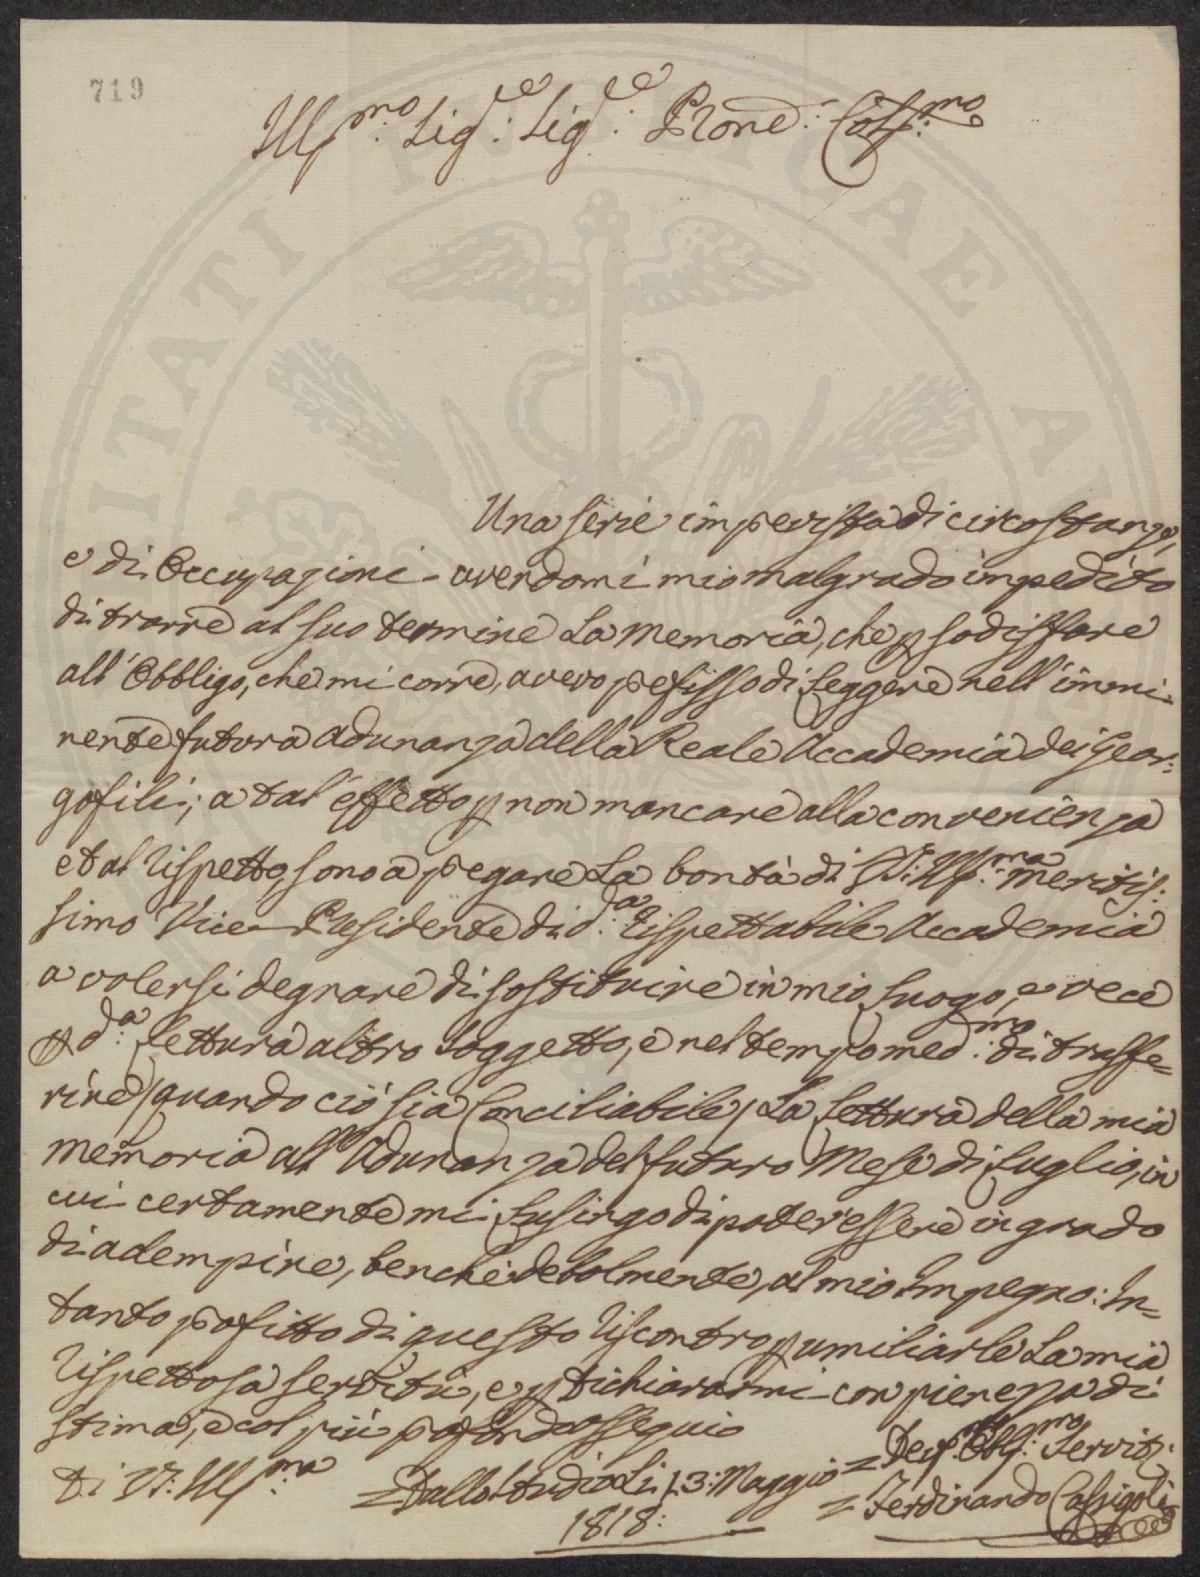 719
Ill:mo Sig:e Sig:e Prone: Col:mo
Una serie imprevista di circostanze,
e di Occupazioni avendomi mio malgrado impedito
di trarre al suo termine La Memoria, che p sodisfare
all'Obbligo, che mi corre, avevo prefisso di Leggere nell'immi-
nente futura adunanza della Reale Accademia dei Geor:
gofili; a tal'effetto p non mancare alla convenienza
et al Rispetto, sono a pregare La bontà di V:S: Ill:ma meritis:
simo Vice-Presidente di d:a Rispettabile Accademia
a volersi degnare di sostituire in mio Luogo, e vece
p d:a Lettura altro soggetto, e nel tempo med:mo di trasfe-
rire (quando ciò sia Conciliabile) La Lettura della mia
memoria all'Adunanza del futuro Mese di Luglio, in
cui certamente mi Lusingo di poter'essere in grado
di adempire, benchè debolmente, al mio Impegno: In-
tanto profitto di questo Riscontro p umiliarle La mia
Rispettosa servitù, e p dichiararmi con pienezza di
stima, e col più profondo ossequio
Di V:S: Ill:ma
= Dallo Studio Li 13: Maggio
1818:
= Dev: Obb:mo Servit:e
= Ferdinando Cassigoli